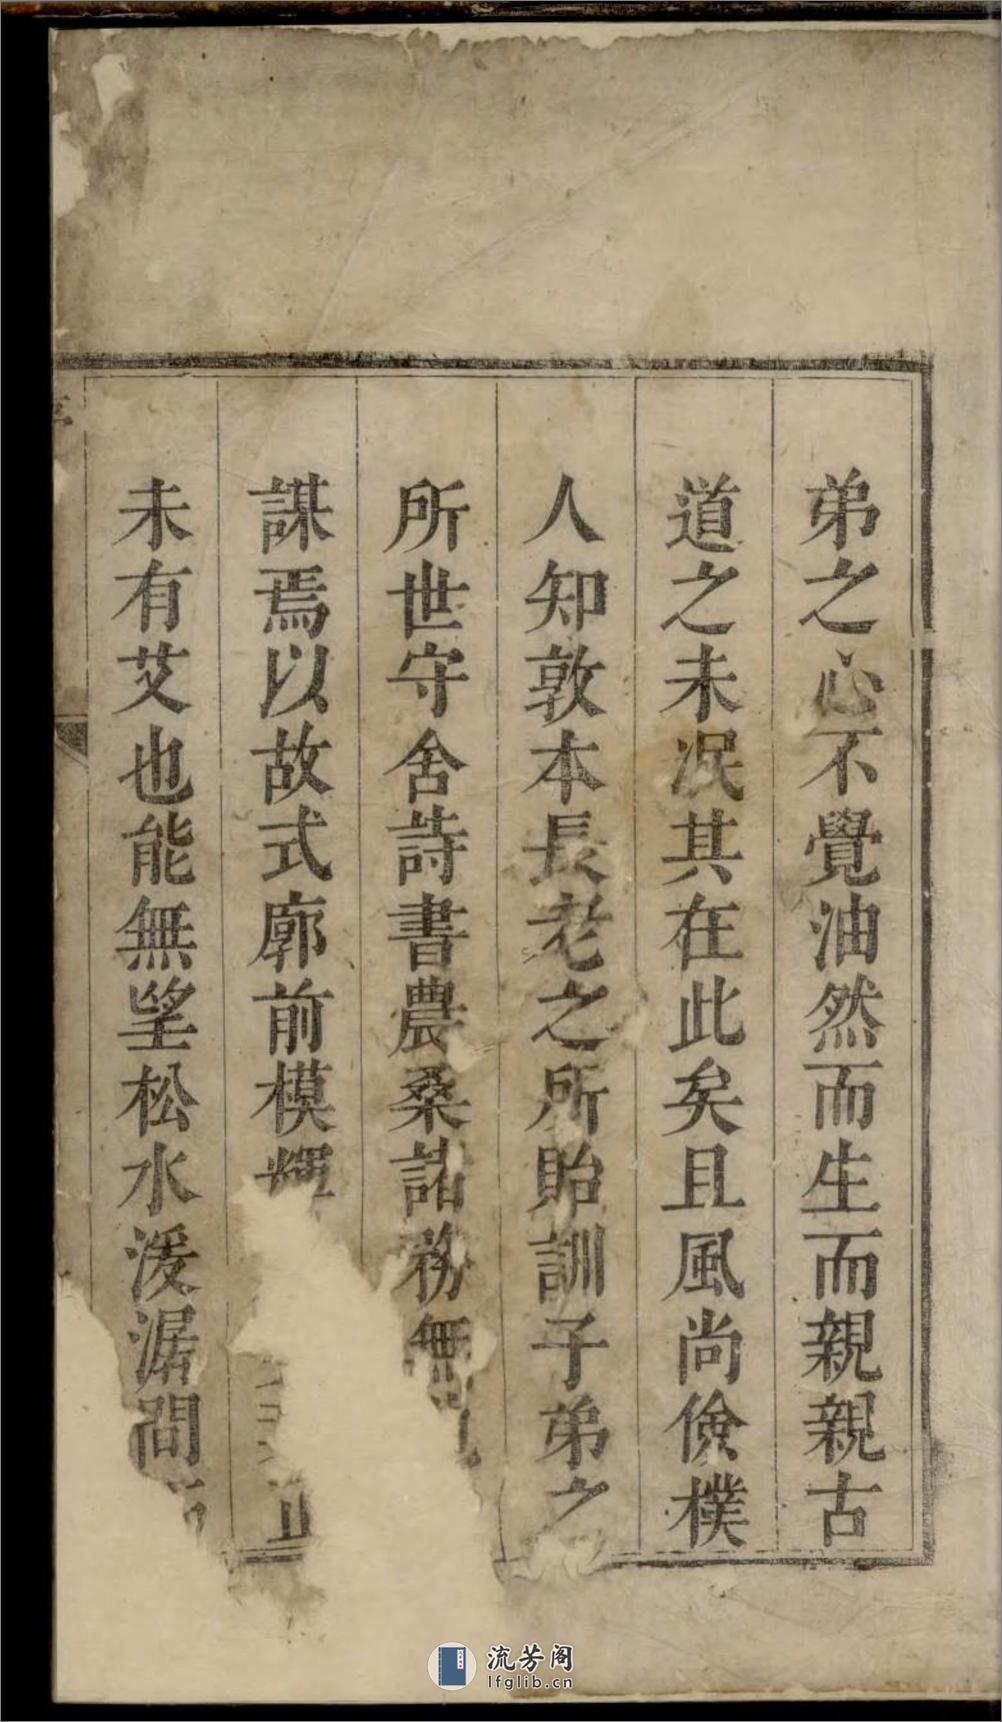 弟之心不覺油然而生而親親古
道之未泯其在此矣且風尚儉樸
人知敦本長老之所貽訓子弟之
所世守舍詩書農桑諸務無
謀焉以故式廓前模輝
未有艾也能無望松水湲潺間
流芳阁
lfglib.cn